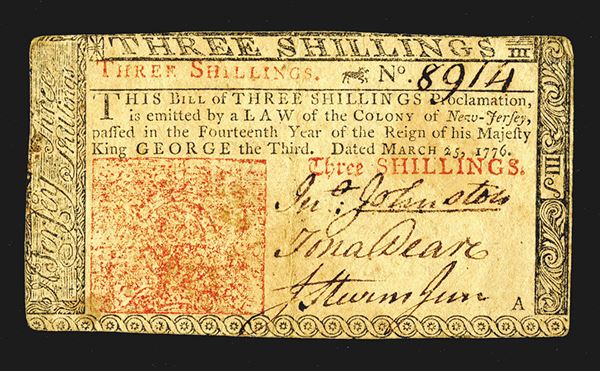 THREE SHILLINGS III
THREE SHILLINGS. No. 8914
THIS BILL of THREE SHILLINGS Proclamation,
is emitted by a LAW of the COLONY of New-Jersey,
passed in the Fourteenth Year of the Reign of his Majesty
King GEORGE the Third. Dated MARCH 25, 1776.
Three SHILLINGS.
Jno. Johnston
Jona Deare
A
III
Three
Shillings
N Jersey